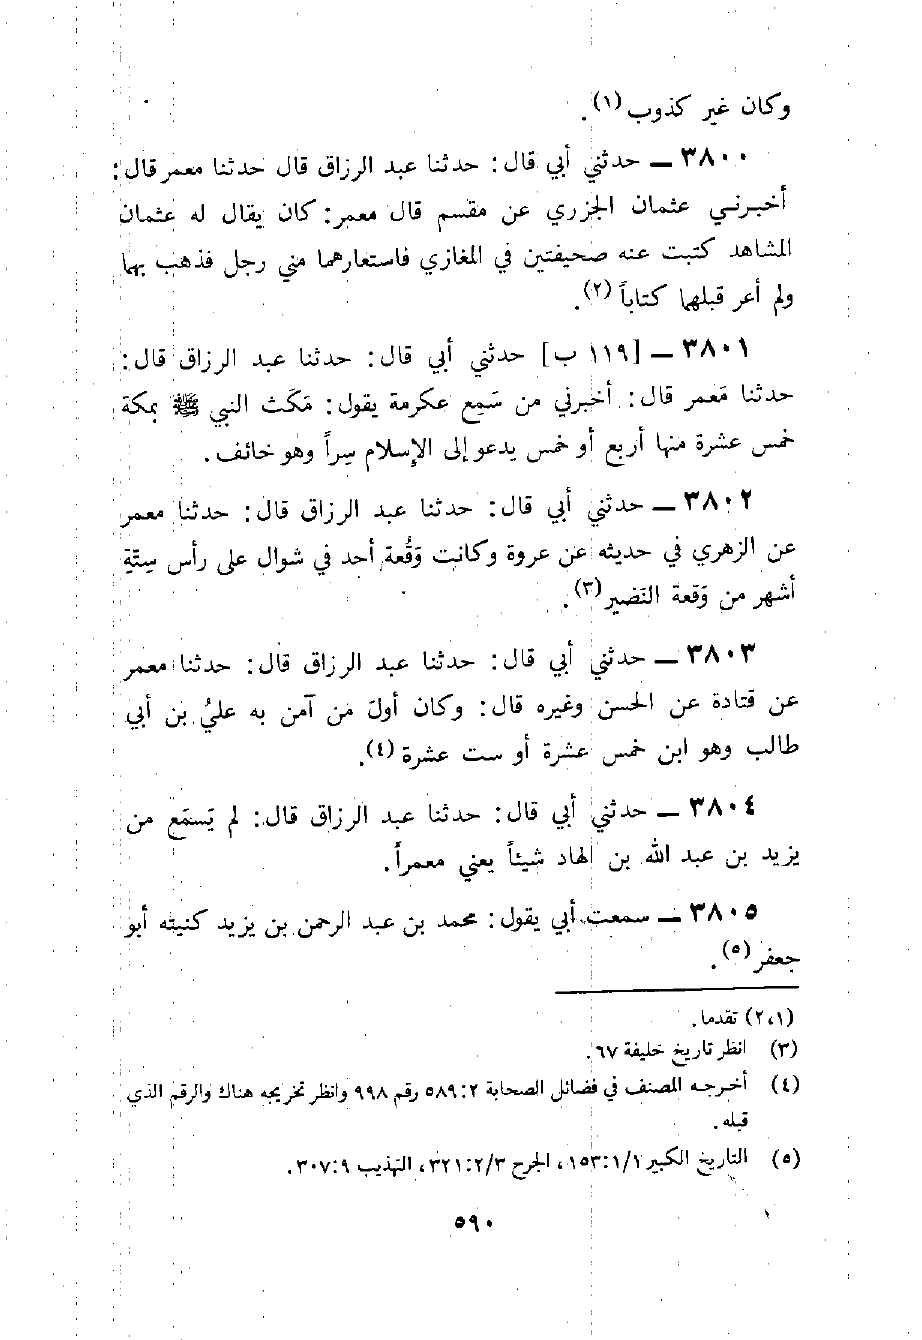 وكان غير كذوب (١).
٣٨٠٠ ــ حدثني أبي قال: حدثنا عبد الرزاق قال حدثنا معمر قال:
أخبرني عثمان الجزري عن مقسم قال معمر: كان يقال له عثمان
المشاهد كتبت عنه صحيفتين في المغازي فاستعارهما مني رجل فذهب بهما
ولم أعر قبلهما كتاباً (٢).
٣٨٠١ ــ [١١٩ ب] حدثني أبي قال: حدثنا عبد الرزاق قال:
حدثنا مَعمر قال: أخبرني من سَمِع عكرمة يقول: مَكَث النبي ﷺ بمكة
خمس عشرة منها أربع أو خمس يدعو إلى الإسلام سِراً وهو خائف.
٣٨٠٢ ــ حدثني أبي قال: حدثنا عبد الرزاق قال: حدثنا معمر
عن الزهري في حديثه عن عروة وكانت وَقْعة أحد في شوال على رأس سِتَّةِ
أشهر من وَقعة النَضير (٣).
٣٨٠٣ ــ حدثني أبي قال: حدثنا عبد الرزاق قال: حدثنا معمر
عن قتادة عن الحسن وغيره قال: وكان أولَ مَن آمن به عليُ بن أبي
طالب وهو ابن خمس عشرة أو ست عشرة (٤).
٣٨٠٤ ــ حدثني أبي قال: حدثنا عبد الرزاق قال: لم يَسمَع من
يزيد بن عبد الله بن الهاد شيئاً يعني معمراً.
٣٨٠٥ ــ سمعت أبي يقول: محمد بن عبد الرحمن بن يزيد كنيته أبو
جعفر (٥).
(١، ٢) تقدما.
(٣) انظر تاريخ خليفة ٦٧.
(٤) أخرجه المصنف في فضائل الصحابة ٢: ٥٨٩ رقم ٩٩٨ وانظر تخريجه هناك والرقم الذي
قبله.
(٥) التاريخ الكبير ١/١: ١٥٣، الجرح ٢/٣: ٣٢١، التهذيب ٩: ٣٠٧.
٥٩٠